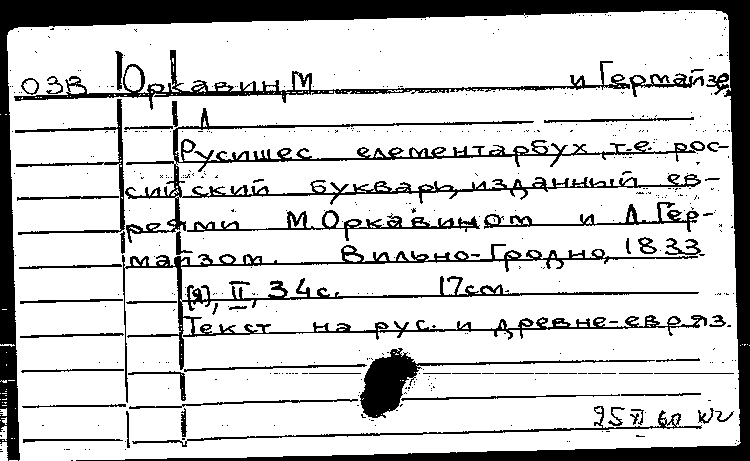 ОЗВ Оркавин, М и Гермайзе,
Л
Русишес елементарбух, т.е. рос-
сийский букварь, изданный ев-
реями М. Оркавином и Л. Гер-
майзом. Вильно-Гродно, 1833
II, 34 с. 17 см.
Текст на рус. и древне-евр. яз.
25 XI 60